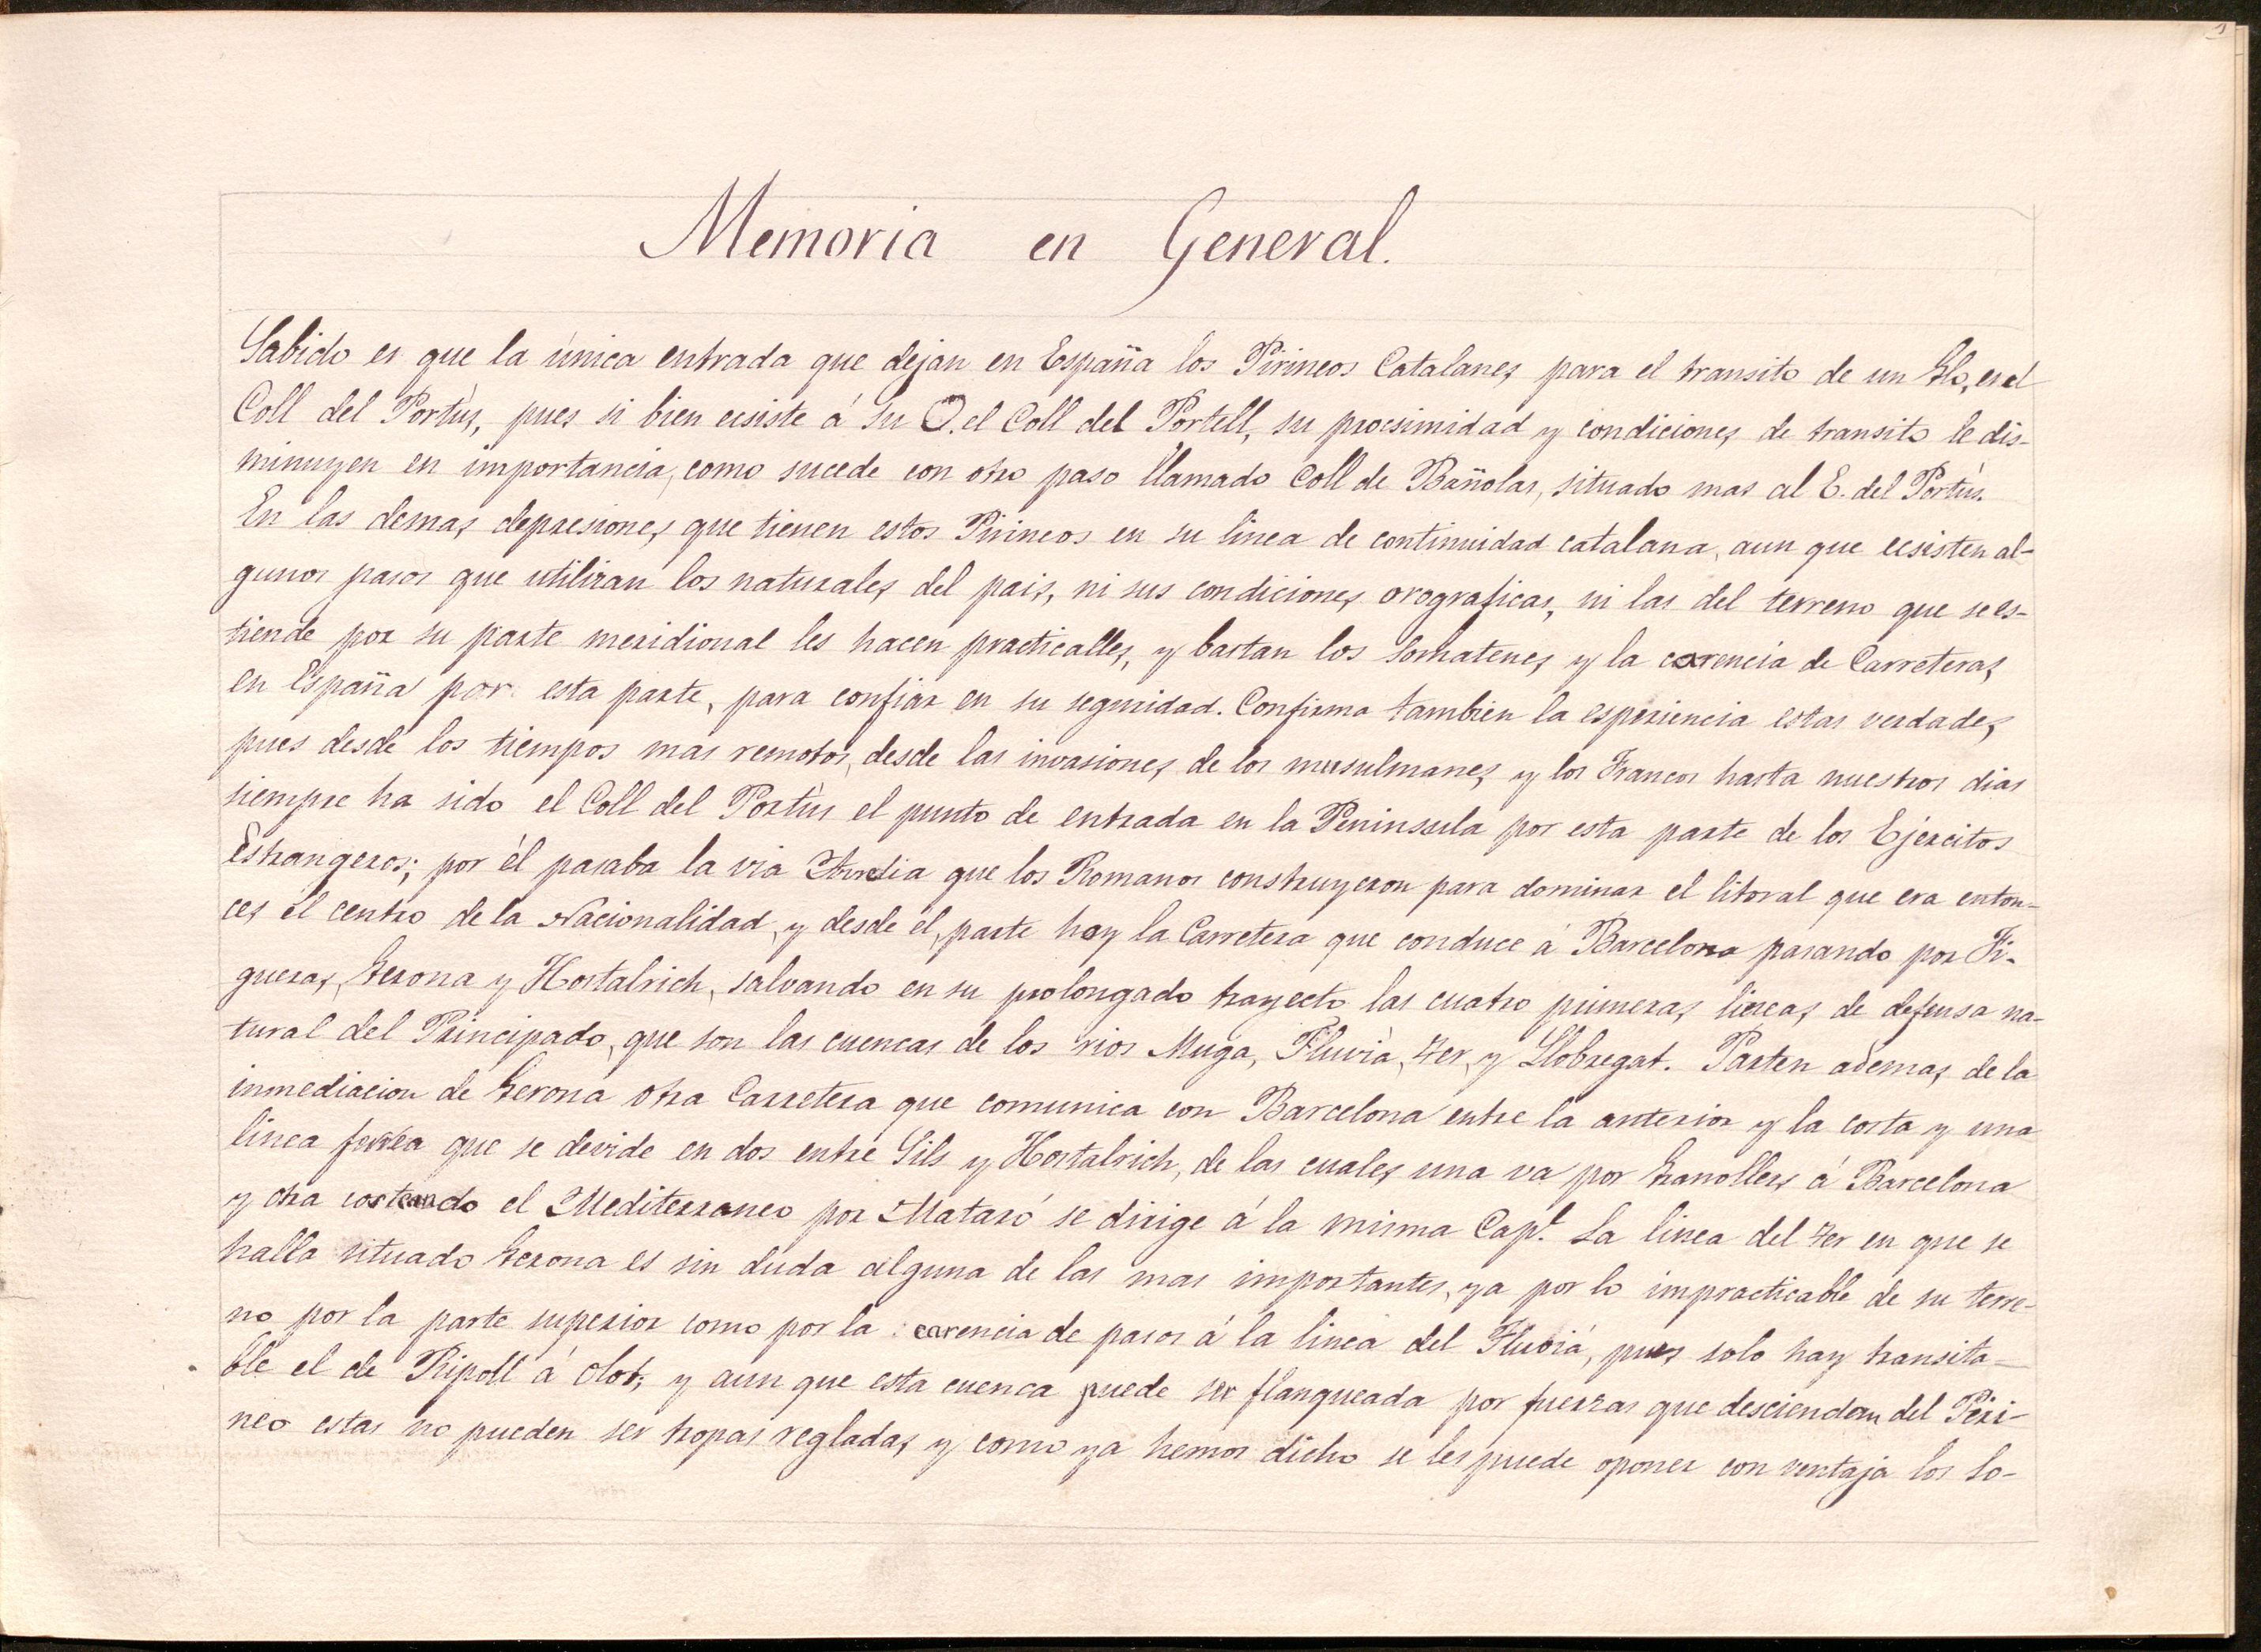 1
Memoria en General.
Sabido es que la única entrada que dejan en España los Pirineos Catalanes para el transito de un Eto, es el
Coll del Portús, pues si bien ecsiste á su O. el Coll del Portell, su procsimidad y condiciones de transito le dis-
minuyen en importancia, como sucede con otro paso llamado Coll de Bañolas, situado mas al E. del Portús.
En las demas depresiones que tienen estos Pirineos en su linea de continuidad catalana, aun que ecsisten al-
gunos pasos que utilizan los naturales del pais, ni sus condiciones orograficas, ni las del terreno que se es-
tiende por su parte meridional les hacen practicalles, y bastan los Somatenes y la carencia de Carreteras
en España por esta parte, para confiar en su seguridad. Confirma tambien la esperiencia estas verdades
pues desde los tiempos mas remotos, desde las invasiones de los musulmanes y los Francos hasta nuestros dias
siempre ha sido el Coll del Portús el punto de entrada en la Peninsula por esta parte de los Ejercitos
Estrangeros; por él pasaba la via Aurelia que los Romanos construyeron para dominar el litoral que era enton-
ces el centro de la Nacionalidad, y desde él, parte hoy la Carretera que conduce á Barcelona pasando por Fi-
gueras, Gerona y Hostalrich, salvando en su prolongado trayecto las cuatro primeras lineas de defensa na-
tural del Principado, que son las cuencas de los rios Muga, Fluviá, Ter, y Llobregat. Parten ademas de la
inmediacion de Gerona otra Carretera que comunica con Barcelona entre la anterior y la costa y una
linea ferrea que se devide en dos entre Sils y Hostalrich, de las cuales una va por Granollers á Barcelona
y otra costeando el Mediterraneo por Mataró se dirige á la misma Capl. La linea del Ter en que se
halla situado Gerona es sin duda alguna de las mas importantes, ya por lo impracticable de su terre-
no por la parte superior como por la carencia de pasos á la linea del Fluviá, pues solo hay transita-
ble el de Ripoll á Olot; y aun que esta cuenca puede ser flanqueada por fuerzas que desciendan del Piri-
neo estas no pueden ser tropas regladas y como ya hemos dicho se les puede oponer con ventaja los So-